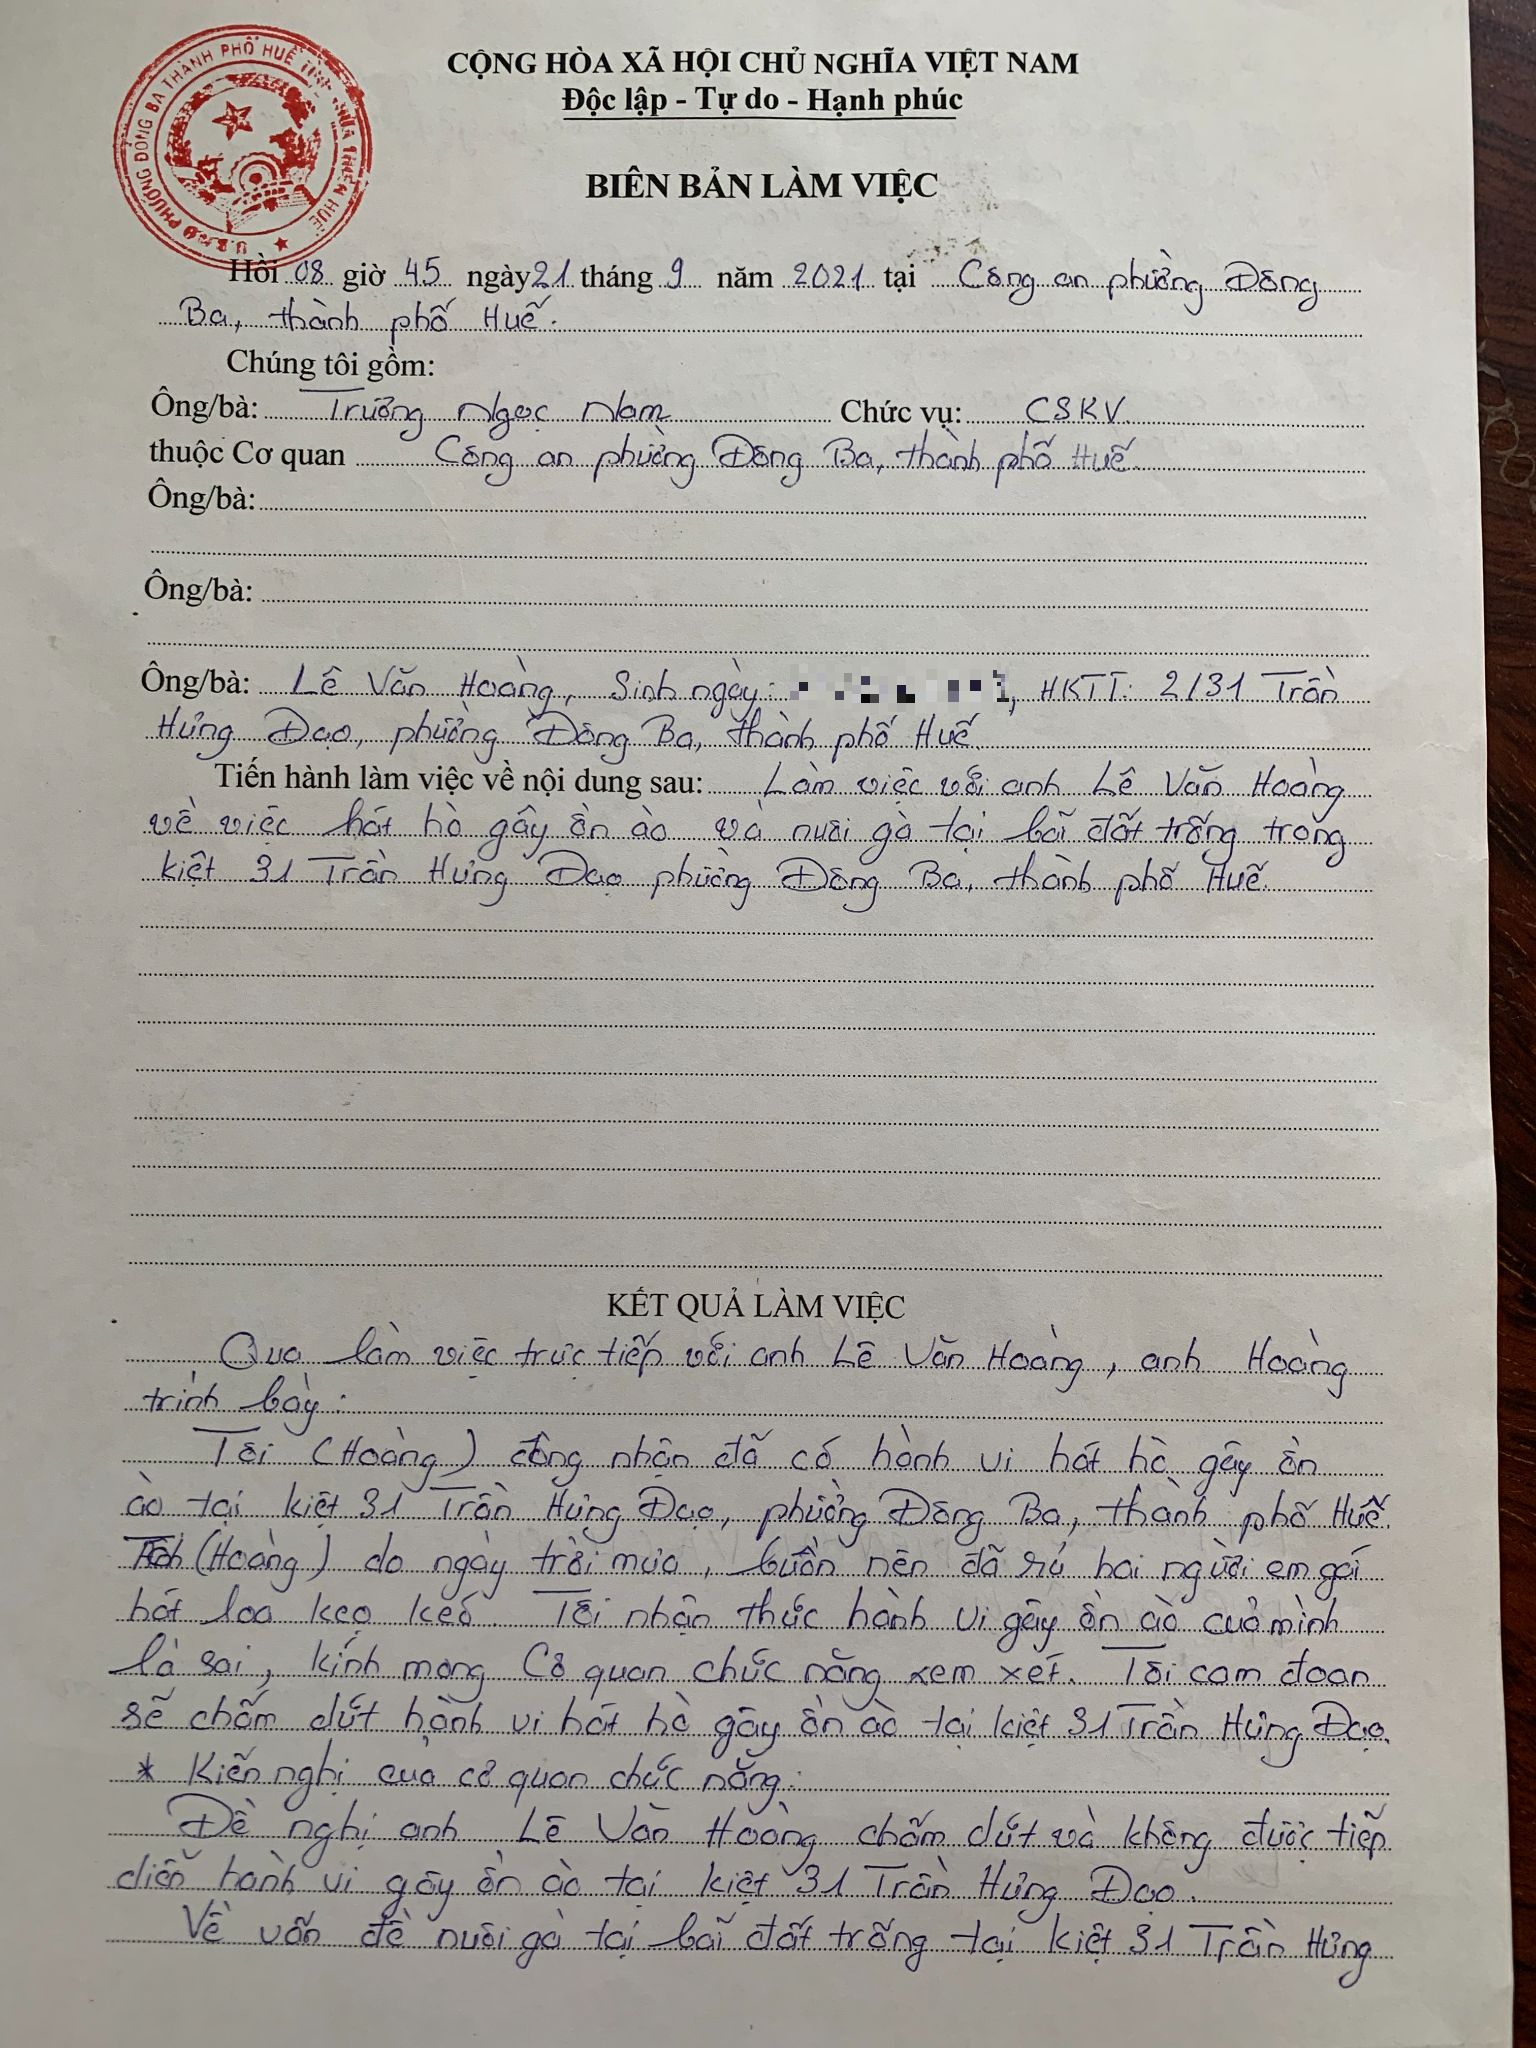 U.B.N.D PHƯỜNG ĐÔNG BA THÀNH PHỐ HUẾ TỈNH THỪA THIÊN HUẾ
CỘNG HÒA XÃ HỘI CHỦ NGHĨA VIỆT NAM
Độc lập - Tự do - Hạnh phúc
BIÊN BẢN LÀM VIỆC
Hồi 08 giờ 45 ngày 21 tháng 9 năm 2021 tại Công an phường Đông
Ba, thành phố Huế.
Chúng tôi gồm:
Ông/bà: Trương Ngọc Nam Chức vụ: CSKV.
thuộc Cơ quan Công an phường Đông Ba, thành phố Huế.
Ông/bà:
Ông/bà:
Ông/bà: Lê Văn Hoàng, Sinh ngày: , HKTT: 2/31 Trần
Hưng Đạo, phường Đông Ba, thành phố Huế.
Tiến hành làm việc về nội dung sau: Làm việc với anh Lê Văn Hoàng
về việc hát hò gây ồn ào và nuôi gà tại bãi đất trống trong
kiệt 31 Trần Hưng Đạo phường Đông Ba, thành phố Huế.
KẾT QUẢ LÀM VIỆC
Qua làm việc trực tiếp với anh Lê Văn Hoàng, anh Hoàng
trình bày:
Tôi (Hoàng) công nhận đã có hành vi hát hò gây ồn
ào tại kiệt 31 Trần Hưng Đạo, phường Đông Ba, thành phố Huế.
(Hoàng) do ngày trời mưa, buồn nên đã rủ hai người em gái
hát loa kẹo kéo. Tôi nhận thức hành vi gây ồn ào của mình
là sai, kính mong Cơ quan chức năng xem xét. Tôi cam đoan
sẽ chấm dứt hành vi hát hò gây ồn ào tại kiệt 31 Trần Hưng Đạo.
* Kiến nghị của cơ quan chức năng:
Đề nghị anh Lê Văn Hoàng chấm dứt và không được tiếp
diễn hành vi gây ồn ào tại kiệt 31 Trần Hưng Đạo.
Về vấn đề nuôi gà tại bãi đất trống tại kiệt 31 Trần Hưng